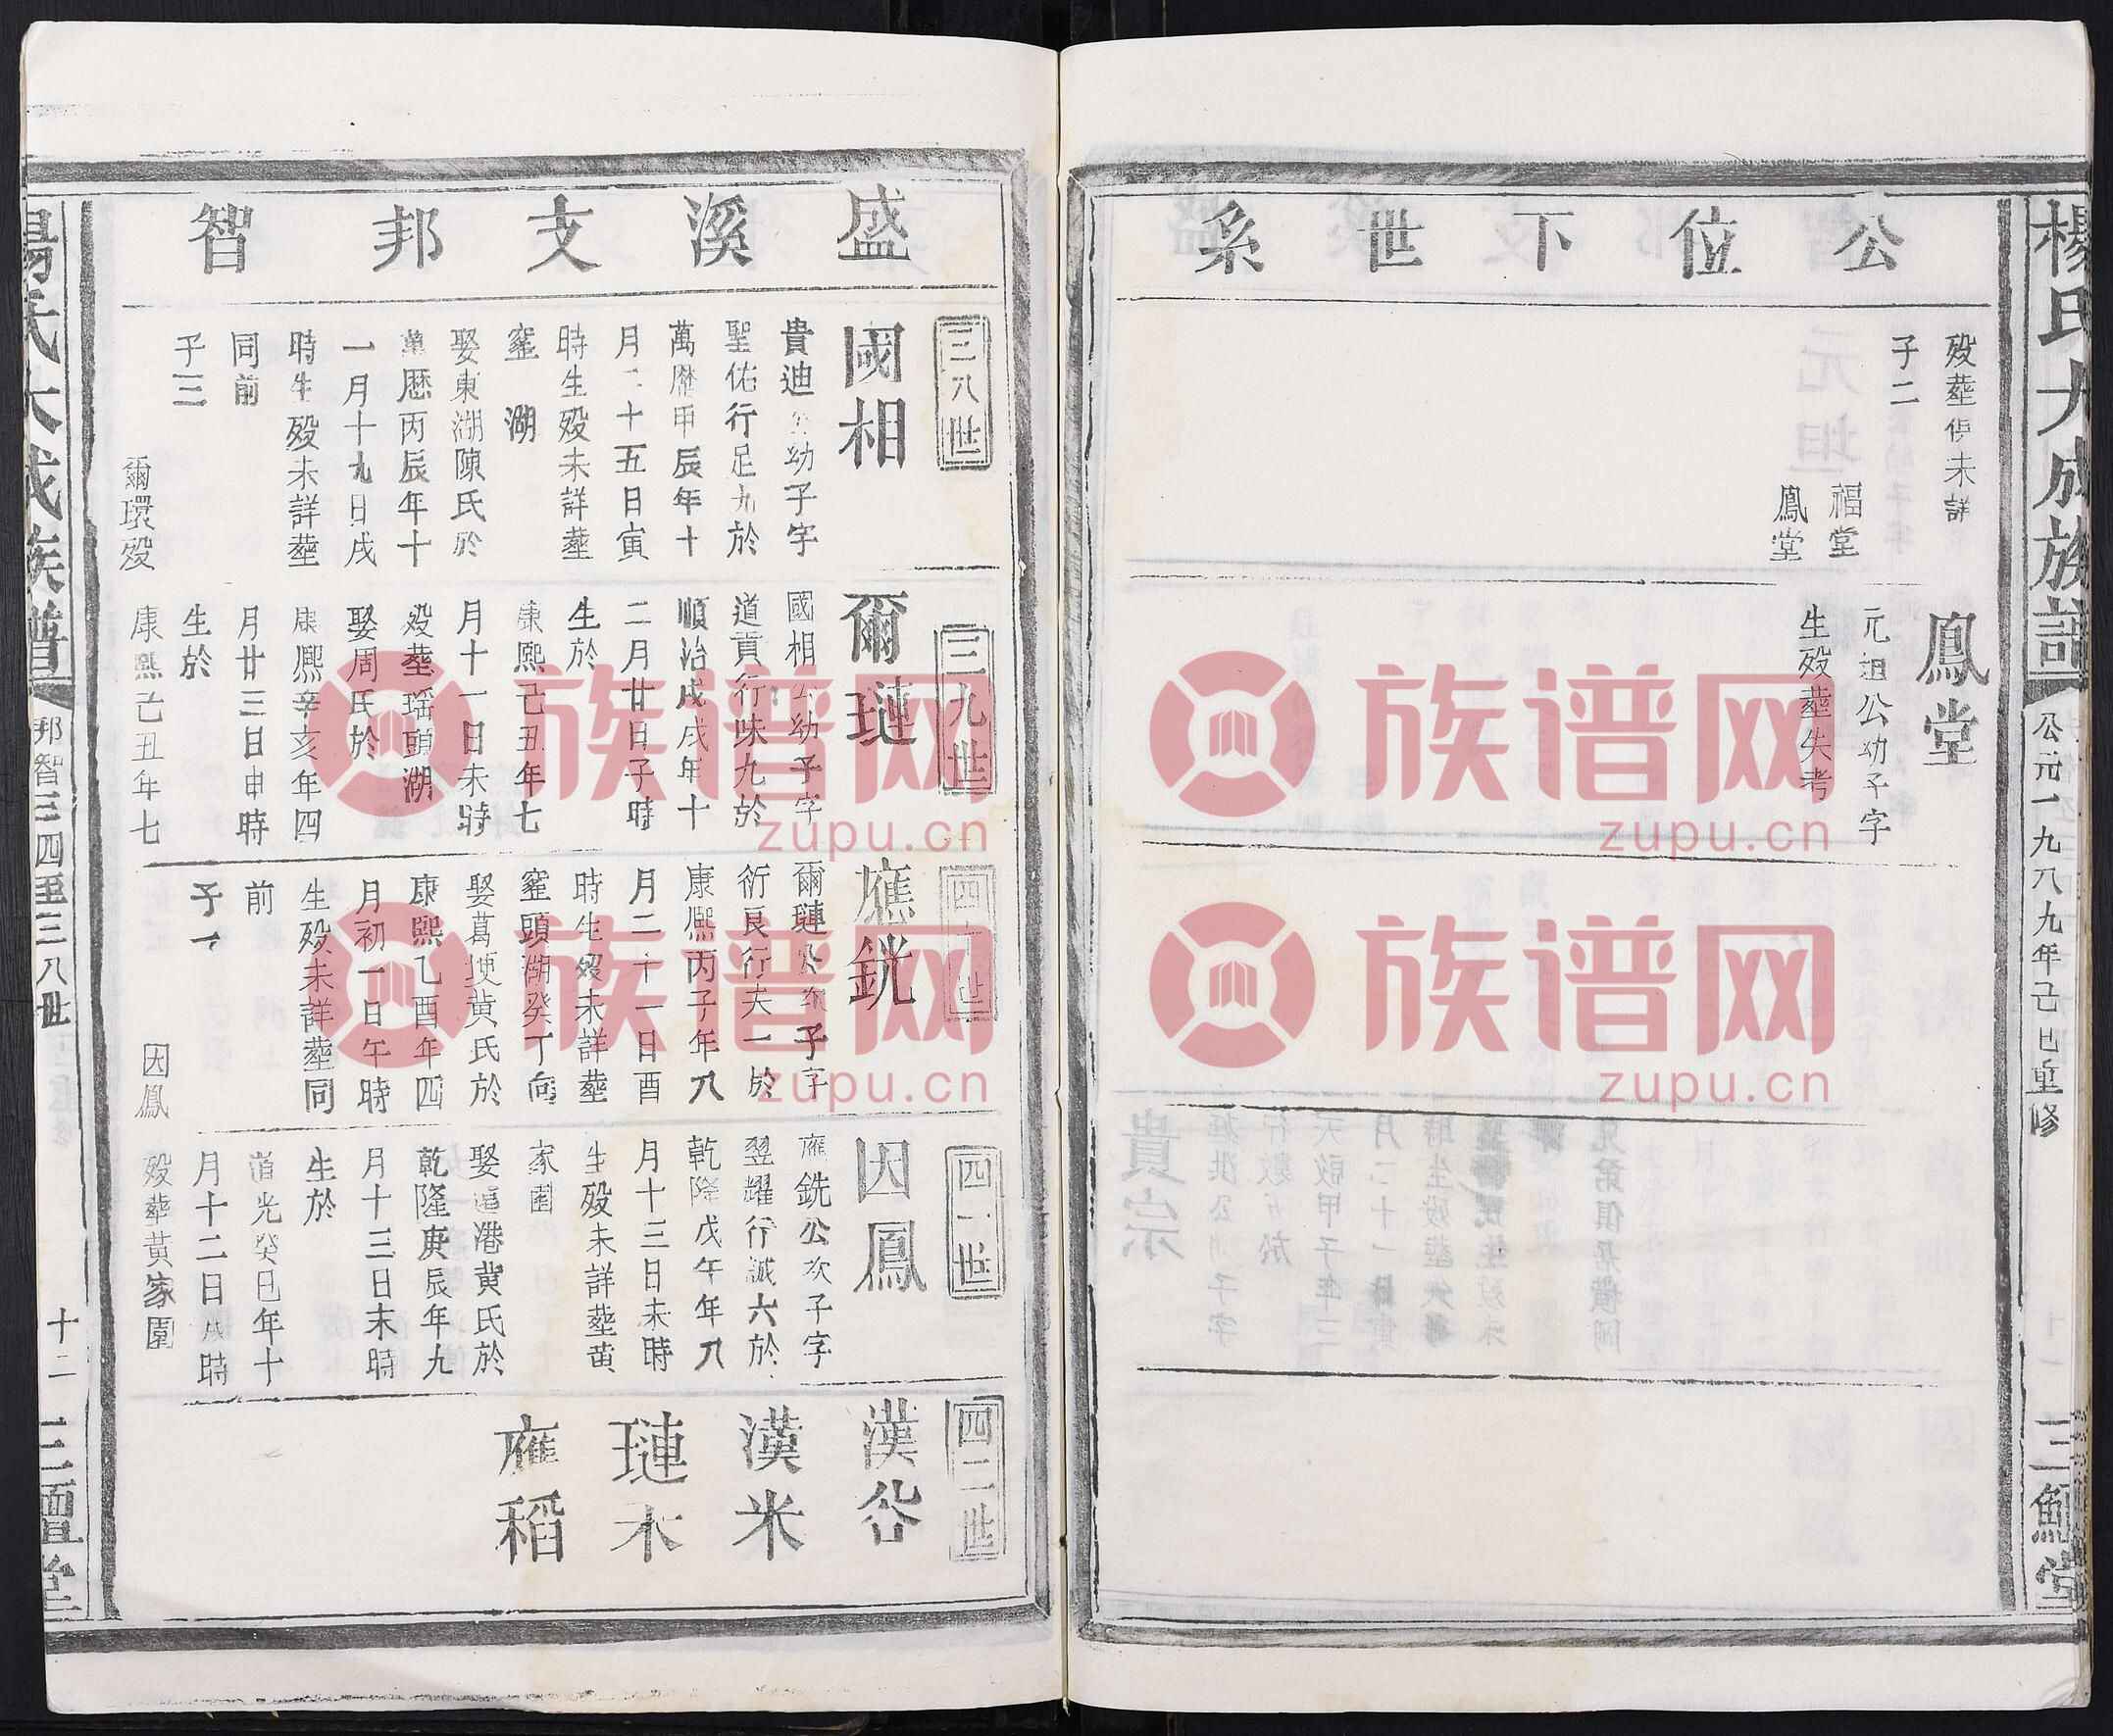 楊氏大成族譜
公元一九八九年己巳重修
三鱣堂
公位下世系
歿葬俱未詳
子二
福堂
鳳堂
鳳堂
元坦公幼子字
生歿葬失考
盛溪支邦智
三八世
國相
貴迪公幼子字
聖佑行足九於
萬曆甲辰年十
月二十五日寅
時生歿未詳葬
窰湖
娶東湖陳氏於
萬曆丙辰年十
一月十九日戌
時生歿未詳葬
同前
子三
爾環歿
三九世
爾璉
國相公幼子字
道貢行味九於
順治戊戌年十
二月廿日子時
生於
康熙己丑年七
月十一日未時
歿葬瑶頭湖
娶周氏於
康熙辛亥年四
月廿三日申時
生於
康熙己丑年七
四十世
應銑
爾璉公次子字
衍良行夫一於
康熙丙子年八
月二十一日酉
時生歿未詳葬
窰頭湖癸丁向
娶葛埂黃氏於
康熙乙酉年四
月初一日午時
生歿未詳葬同
前
子一
因鳳
四一世
因鳳
應銑公次子字
翌耀行誠六於
乾隆戊午年八
月十三日未時
生歿未詳葬黃
家園
娶逼港黃氏於
乾隆庚辰年九
月十三日未時
生於
道光癸巳年十
月十二日戌時
歿葬黃家園
四二世
漢谷
漢米
璉木
應稻
楊氏大成族譜
邦智三四至三八世
十二
三鱣堂
族谱网
zupu.cn
族谱网
zupu.cn
族谱网
zupu.cn
族谱网
zupu.cn